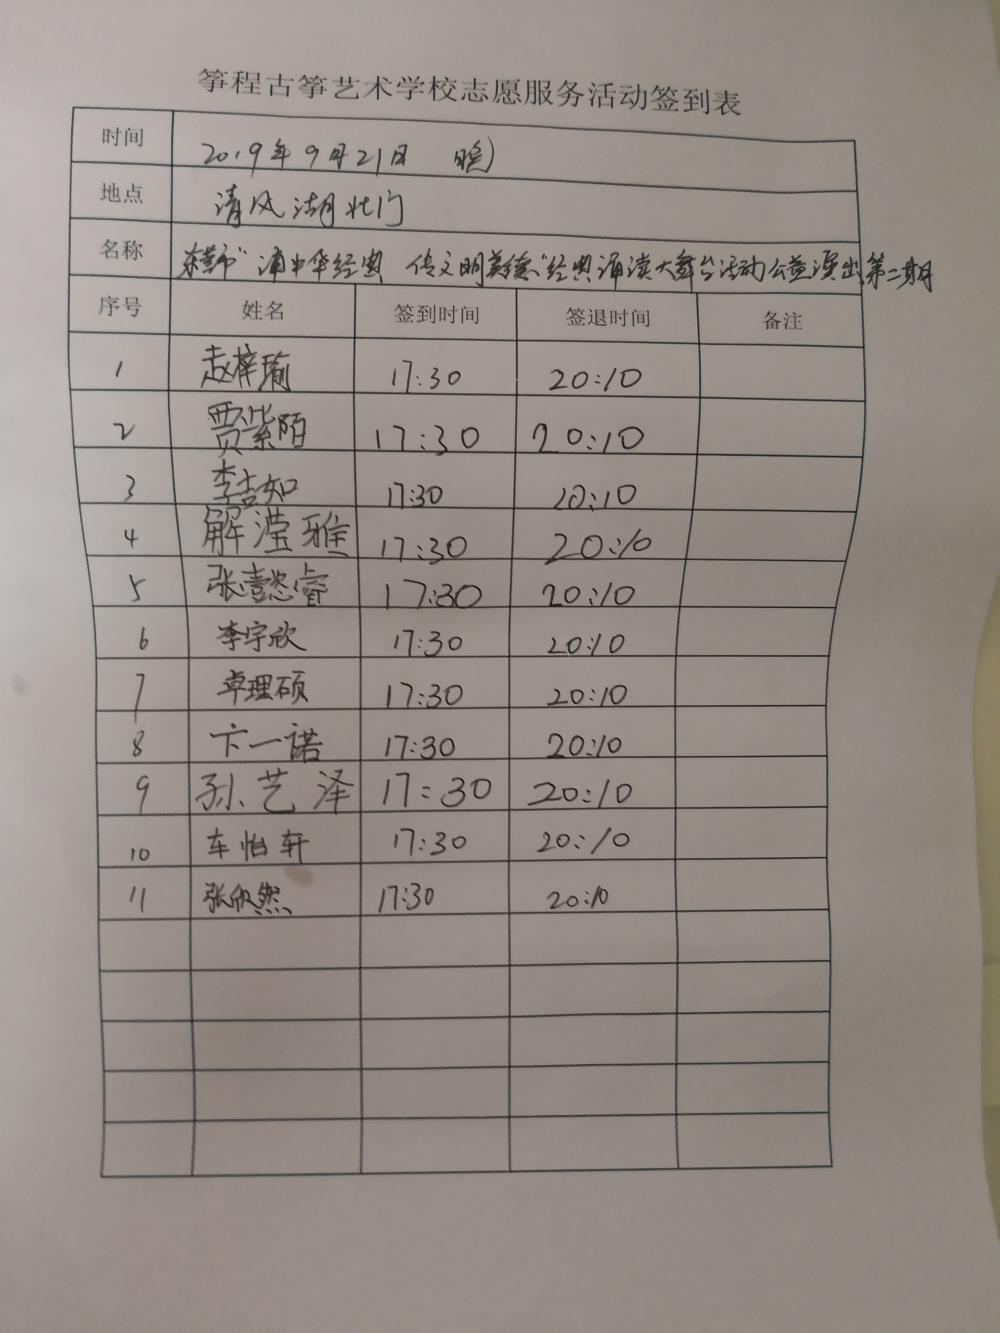 筝程古筝艺术学校志愿服务活动签到表
时间 2019年9月21日 晚
地点 清风湖北门
名称 东营市"诵中华经典 传文明美德"经典诵读大舞台活动公益演出第二期
序号 姓名 签到时间 签退时间 备注
1 赵梓瑜 17:30 20:10
2 贾紫陌 17:30 20:10
3 李吉知 17:30 20:10
4 解滢雅 17:30 20:10
5 张懿睿 17:30 20:10
6 李宇欣 17:30 20:10
7 卓理硕 17:30 20:10
8 卞一诺 17:30 20:10
9 孙艺泽 17:30 20:10
10 车怡轩 17:30 20:10
11 张欣然 17:30 20:10